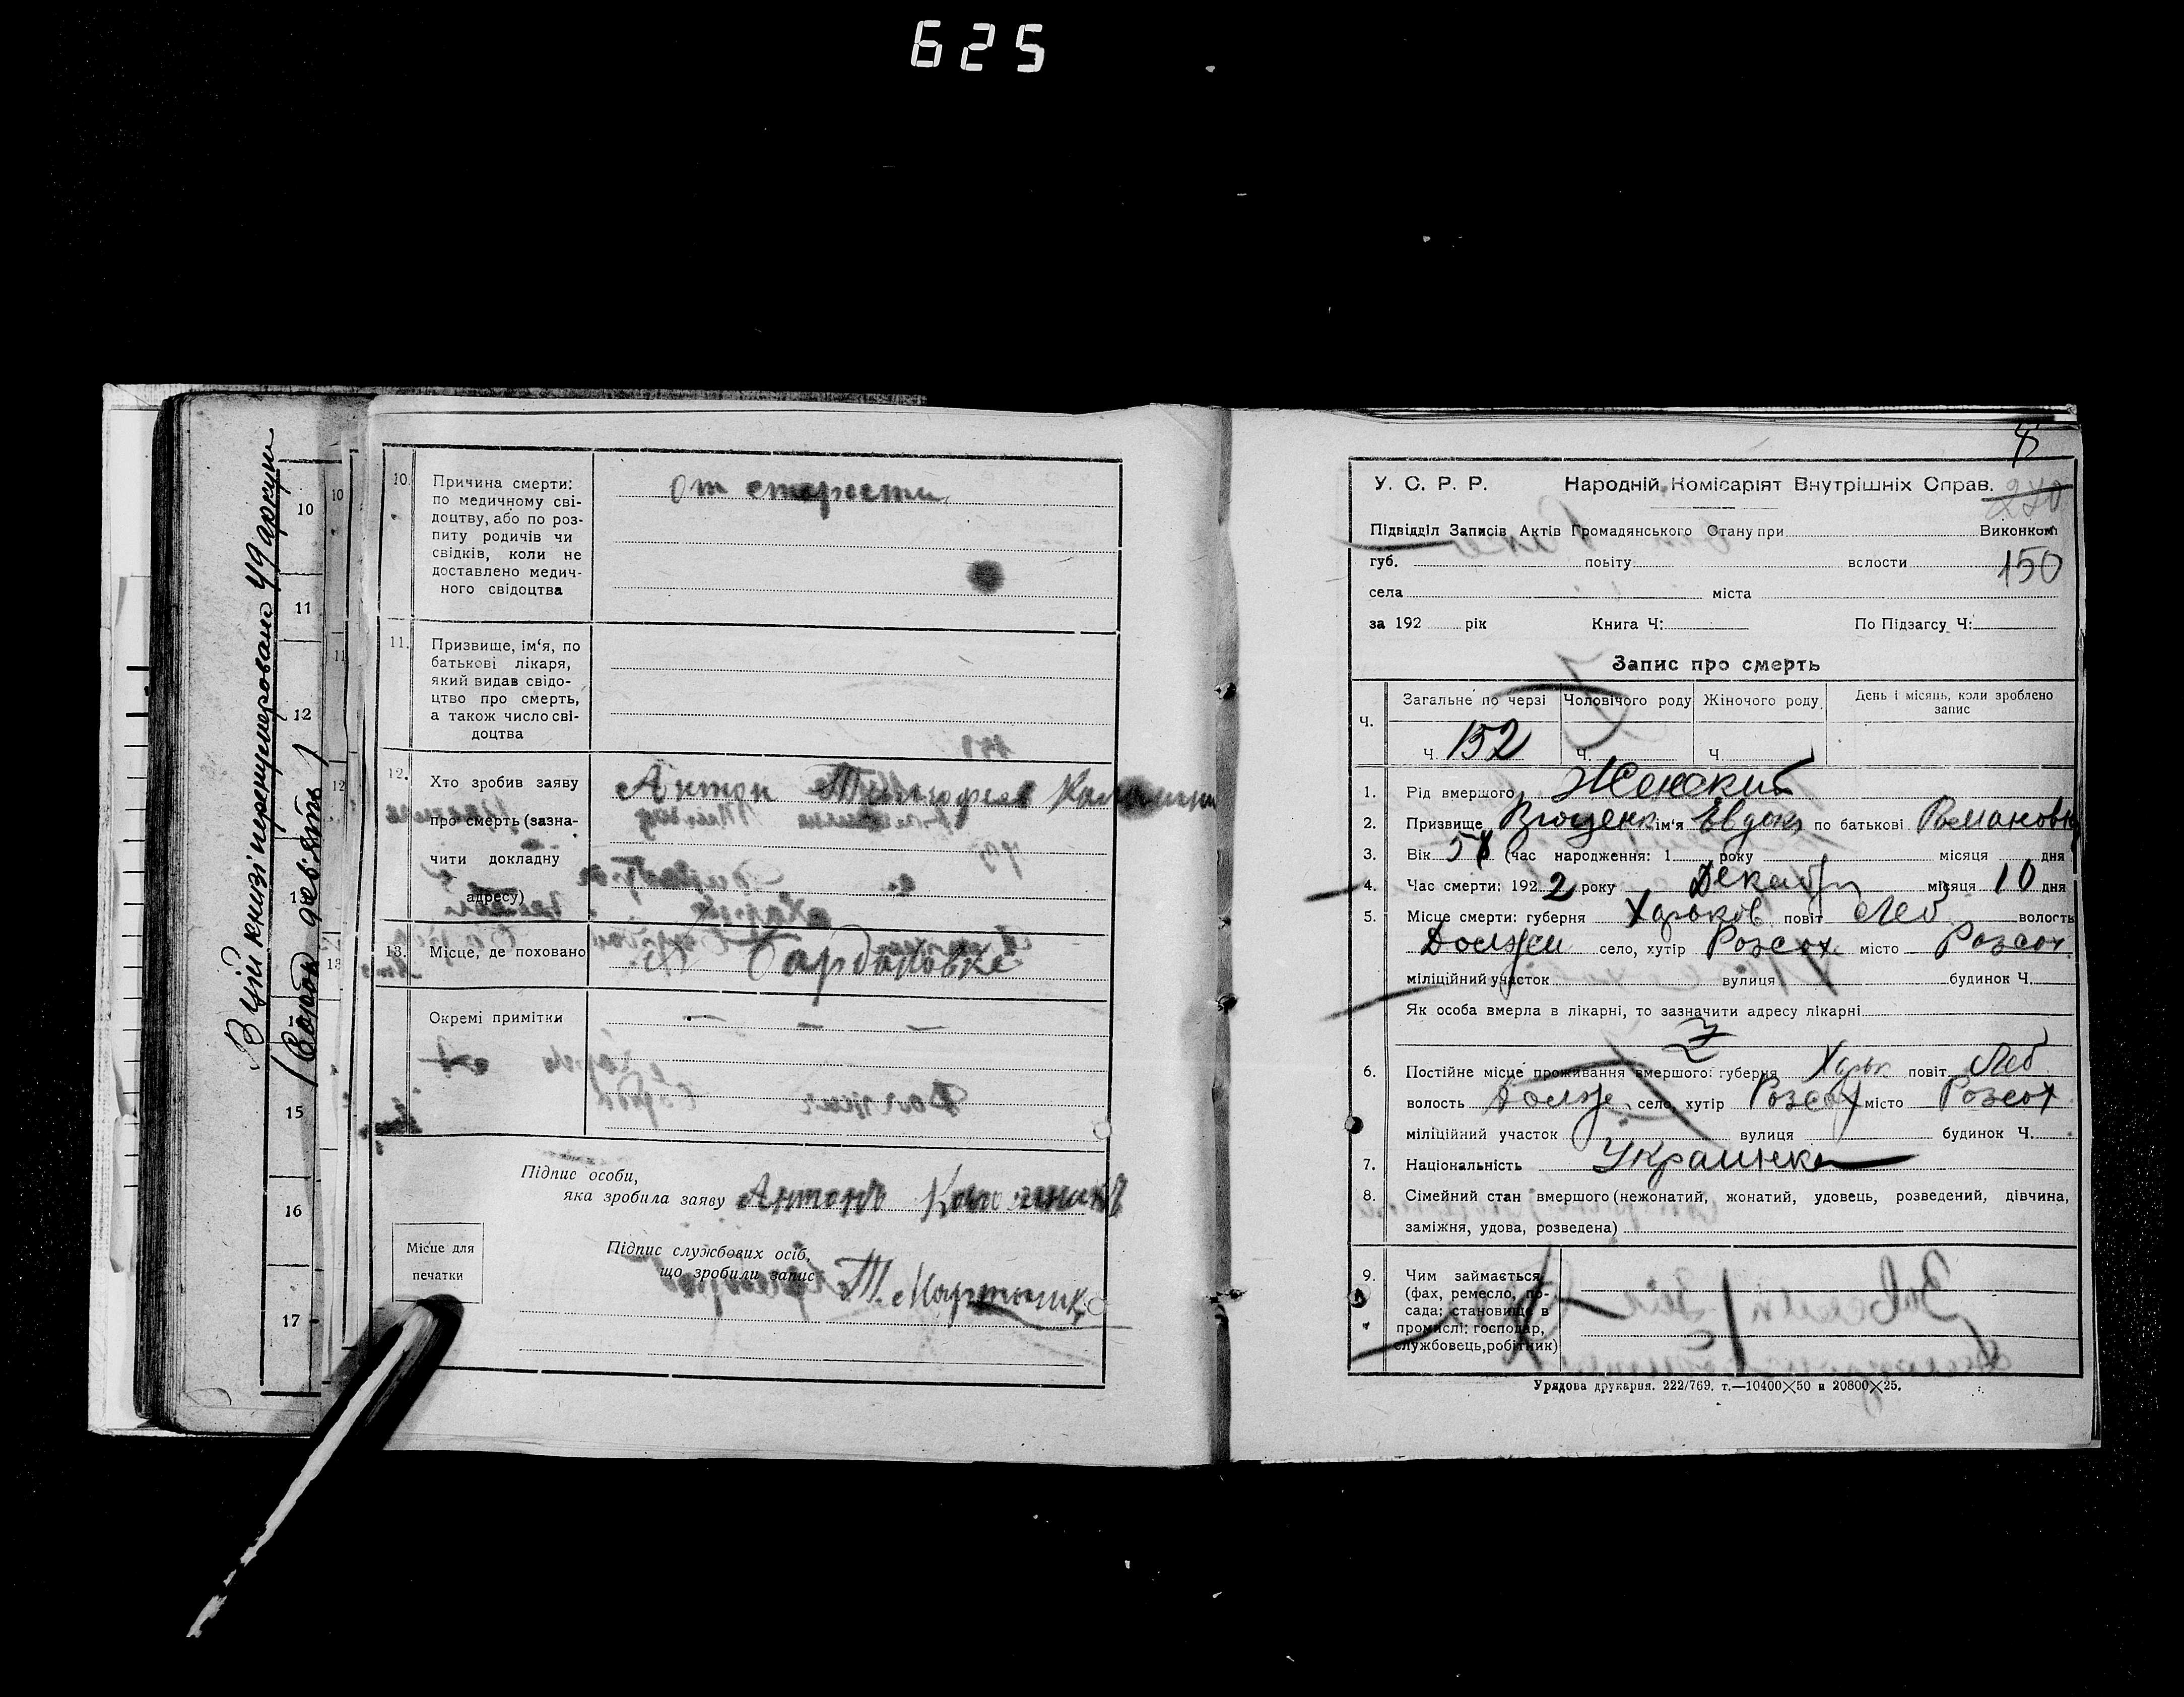 625
В цій книзі перенумеровано 49 аркуш
/Сорок дев'ять/
10
11
12
13
15
16
17
10
11
12
13
10. Причина смерти:
по медичному сві-
доцтву, або по роз-
питу родичів чи
свідків, коли не
доставлено медич-
ного свідоцтва
от старости
11. Призвище, ім'я, по
батькові лікаря,
який видав свідо-
цтво про смерть,
а також число сві-
доцтва
12. Хто зробив заяву
про смерть (зазна-
чити докладну
адресу)
Антон
13. Місце, де поховано
Окремі примітки — — —
Підпис особи,
яка зробила заяву Антонъ
Місце для
печатки
Підпис службових осіб,
що зробили запис
У. С. Р. Р. Народній Комісаріят Внутрішніх Справ.
270
Підвідділ Записів Актів Громадянського Стану при Виконком
губ. повіту вслости 150
села міста
за 192 рік Книга Ч: По Підзагсу Ч:
Запис про смерть
Ч. Загальне по черзі Чоловічого роду Жіночого роду День і місяць, коли зроблено
запис
Ч. 152 Ч. Ч.
1. Рід вмершого Женский
2. Призвище ім'я Евдок по батькові Романовн
3. Вік 58 (час народження: 1 року місяця дня
4. Час смерти: 192 2 року Декабр місяця 10 дня
5. Місце смерти: губерня Харьков повіт Леб волость
Должи село, хутір Розсох місто Розсох
міліційний участок вулиця будинок Ч.
Як особа вмерла в лікарні, то зазначити адресу лікарні
6. Постійне місце проживання вмершого: губерня Харьк повіт Леб
волость Должи село, хутір Розсох місто Розсох
міліційний участок вулиця будинок Ч.
7. Національність Украинка
8. Сімейний стан вмершого (нежонатий, жонатий, удовець, розведений, дівчина,
заміжня, удова, розведена)
9. Чим займається
(фах, ремесло, по-
сада; становище в
промислі: господар,
службовець, робітник)
Урядова друкарня. 222/769. т.—10400×50 и 20800×25.